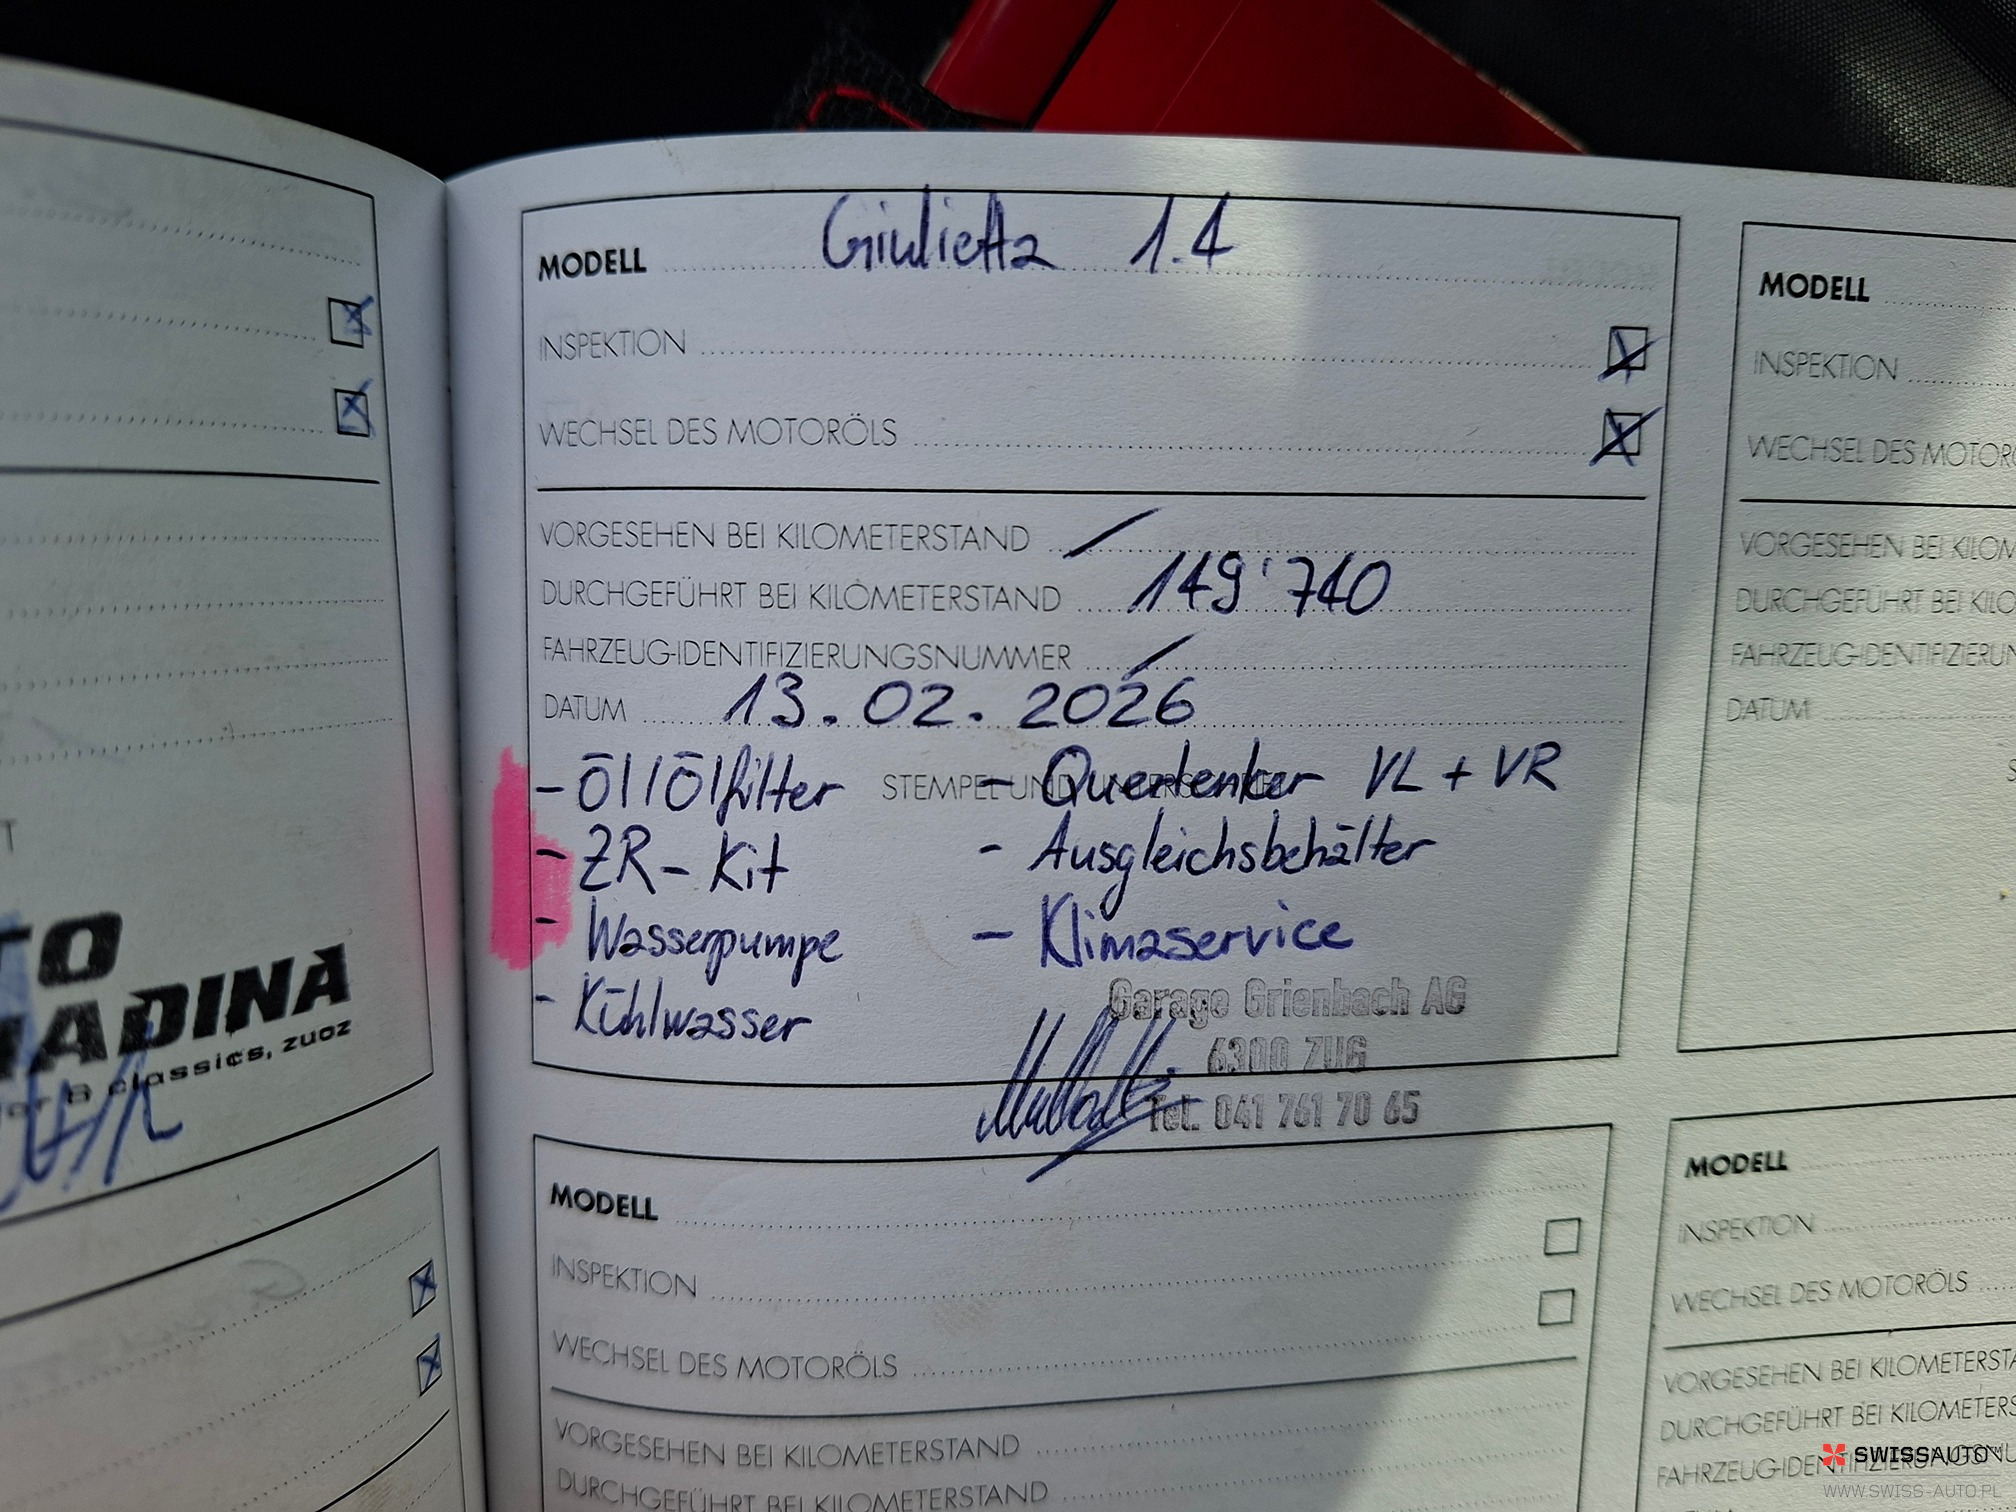 MODELL Giulietta 1.4
INSPEKTION
WECHSEL DES MOTORÖLS
VORGESEHEN BEI KILOMETERSTAND
DURCHGEFÜHRT BEI KILOMETERSTAND 149'740
FAHRZEUG-IDENTIFIZIERUNGSNUMMER
DATUM 13.02.2026
STEMPEL UND
- Öl/Ölfilter
- ZR-Kit
- Wasserpumpe
- Kühlwasser
- Querlenker VL + VR
- Ausgleichsbehälter
- Klimaservice
Garage Grienbach AG
6300 ZUG
Tel. 041 761 70 65
MODELL
INSPEKTION
WECHSEL DES MOTORÖLS
VORGESEHEN BEI KILOMETERSTAND
DURCHGEFÜHRT BEI KILOMETERSTAND
MODELL
INSPEKTION
WECHSEL DES MOTOR
VORGESEHEN BEI KILOM
DURCHGEFÜHRT BEI KILO
FAHRZEUG-IDENTIFIZIERUN
DATUM
MODELL
INSPEKTION
WECHSEL DES MOTORÖLS
VORGESEHEN BEI KILOMETERSTA
DURCHGEFÜHRT BEI KILOMETERS
FAHRZEUG-IDENTIFIZIERUNGSNU
TO
ADINA
classics, zuoz
SWISSAUTO
WWW.SWISS-AUTO.PL